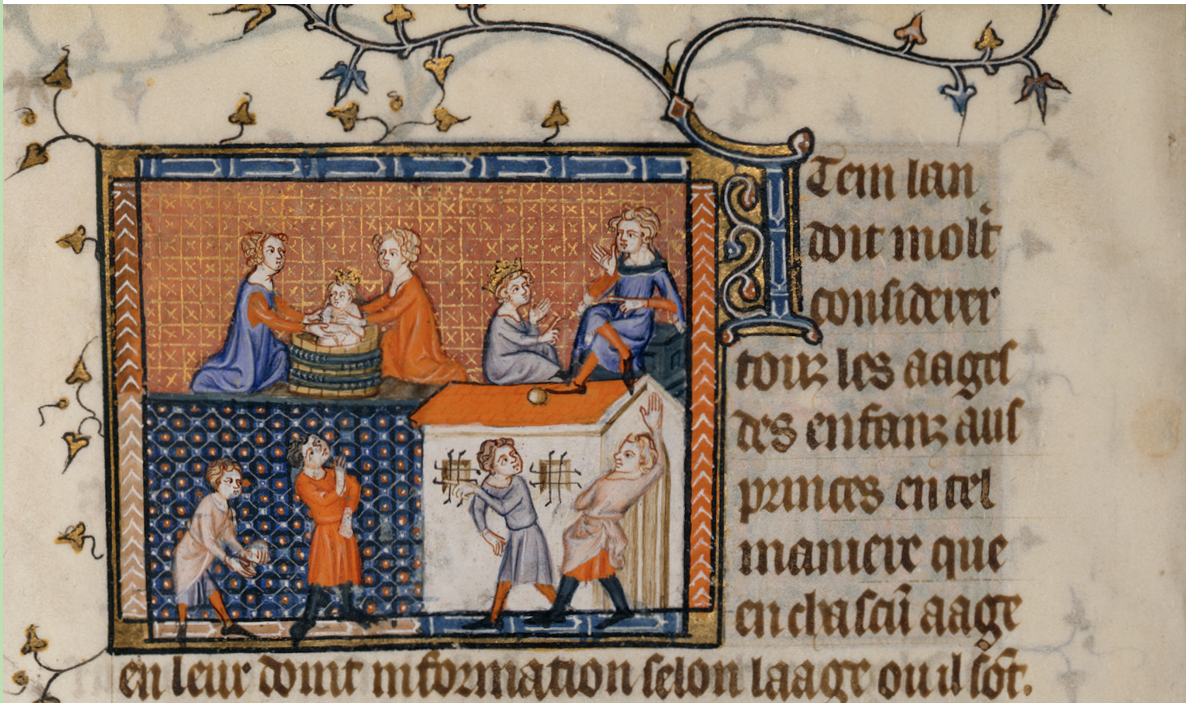 ITem lan
doit molt
considerer
touz les aages
des enfanz aus
princes en tel
maniere que
en chascū aage
en leur doint information selon laage ou il sōt.